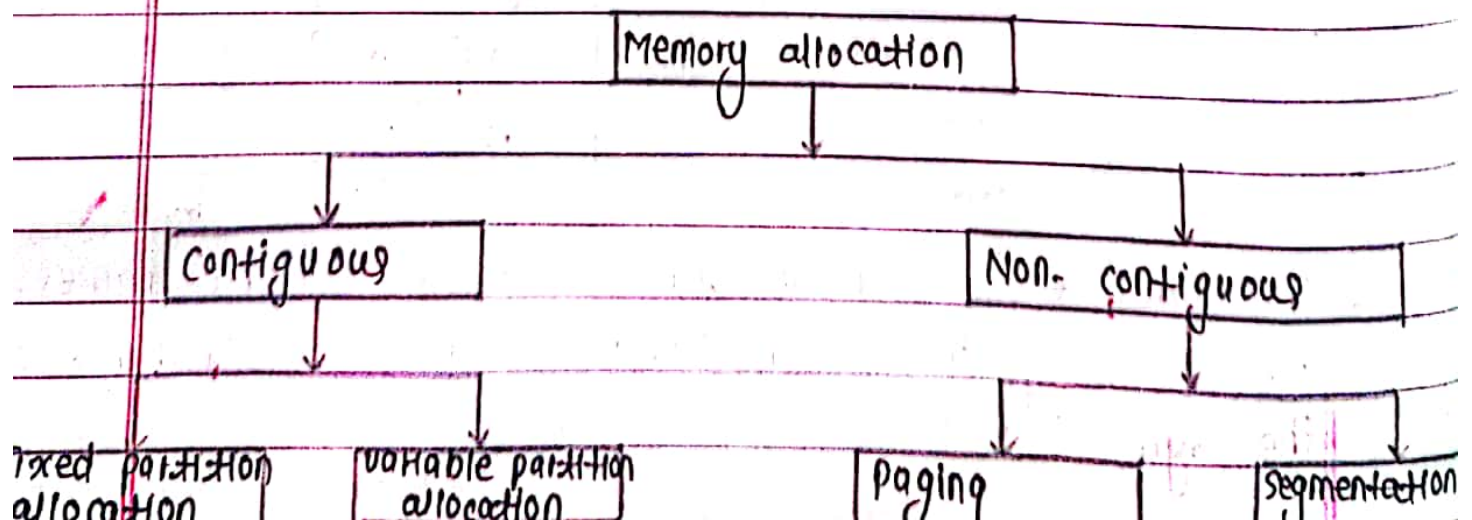 Memory allocation
Contiguous
Non- contiguous
ixed partition
allocation
variable partition
allocation
paging
segmentation